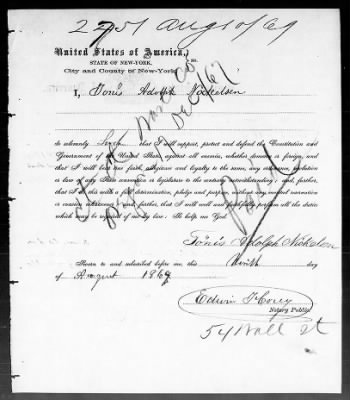 2251 Aug 10/69
United States of America,
STATE OF NEW-YORK,
City and County of New-York } ss.
I, Tönis Adolph Nickelsen
do solemnly Swear that I will support, protect and defend the Constitution and
Government of the United States against all enemies, whether domestic or foreign, and
that I will bear true faith, allegiance and loyalty to the same, any ordinance, resolution
or law of any State convention or legislature to the contrary notwithstanding; and, further,
that I do this with a full determination, pledge and purpose, without any mental reservation
or evasion whatsoever; and, further, that I will well and faithfully perform all the duties
which may be required of me by law. So help me God.
Tönis Adolph Nickelsen
Sworn to and subscribed before me, this Ninth day
of August 1869
Edwin F Corey
Notary Public.
54 Wall St